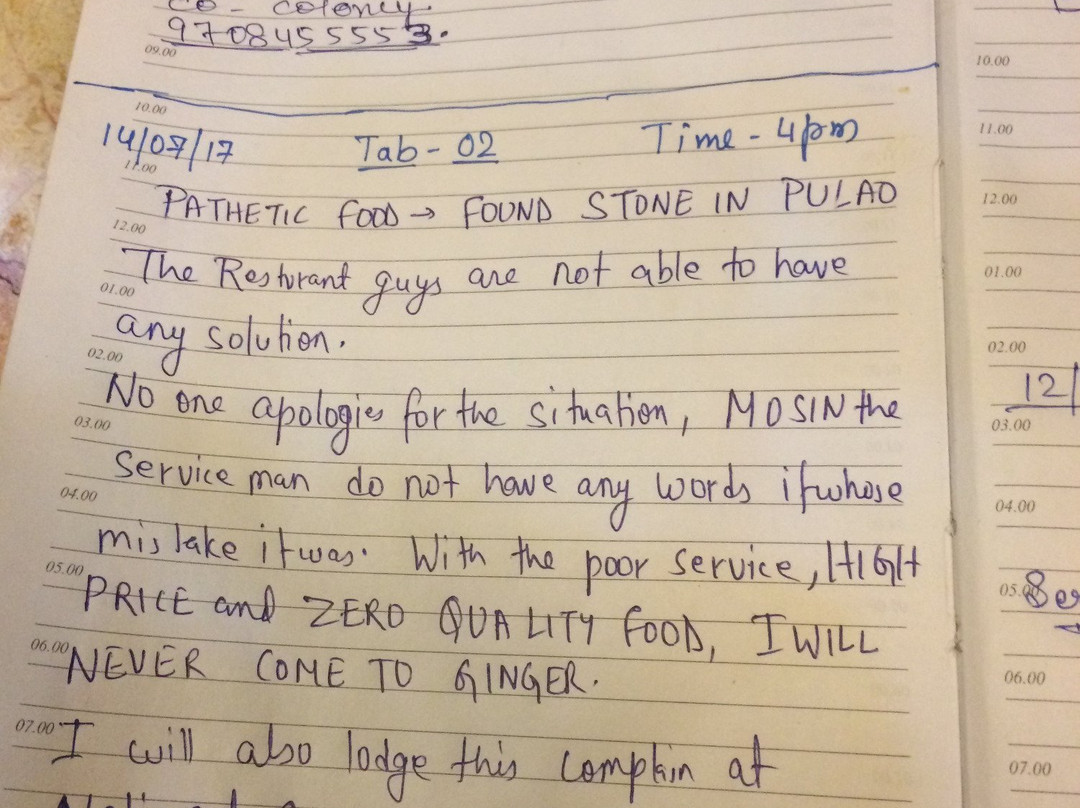 co - coloney.
9708455553.
09.00
10.00
14/07/17 Tab - 02 Time - 4pm
11.00
PATHETIC FOOD → FOUND STONE IN PULAO
12.00
The Resturant guys are not able to have
01.00
any solution.
02.00
No one apologies for the situation, MOSIN the
03.00
service man do not have any words if whose
04.00
mistake it was. With the poor service, HIGH
05.00
PRICE and ZERO QUALITY FOOD, I WILL
06.00
NEVER COME TO GINGER.
07.00
I will also lodge this complain at
10.00
11.00
12.00
01.00
02.00
12/
03.00
04.00
05.00
Ser
06.00
07.00